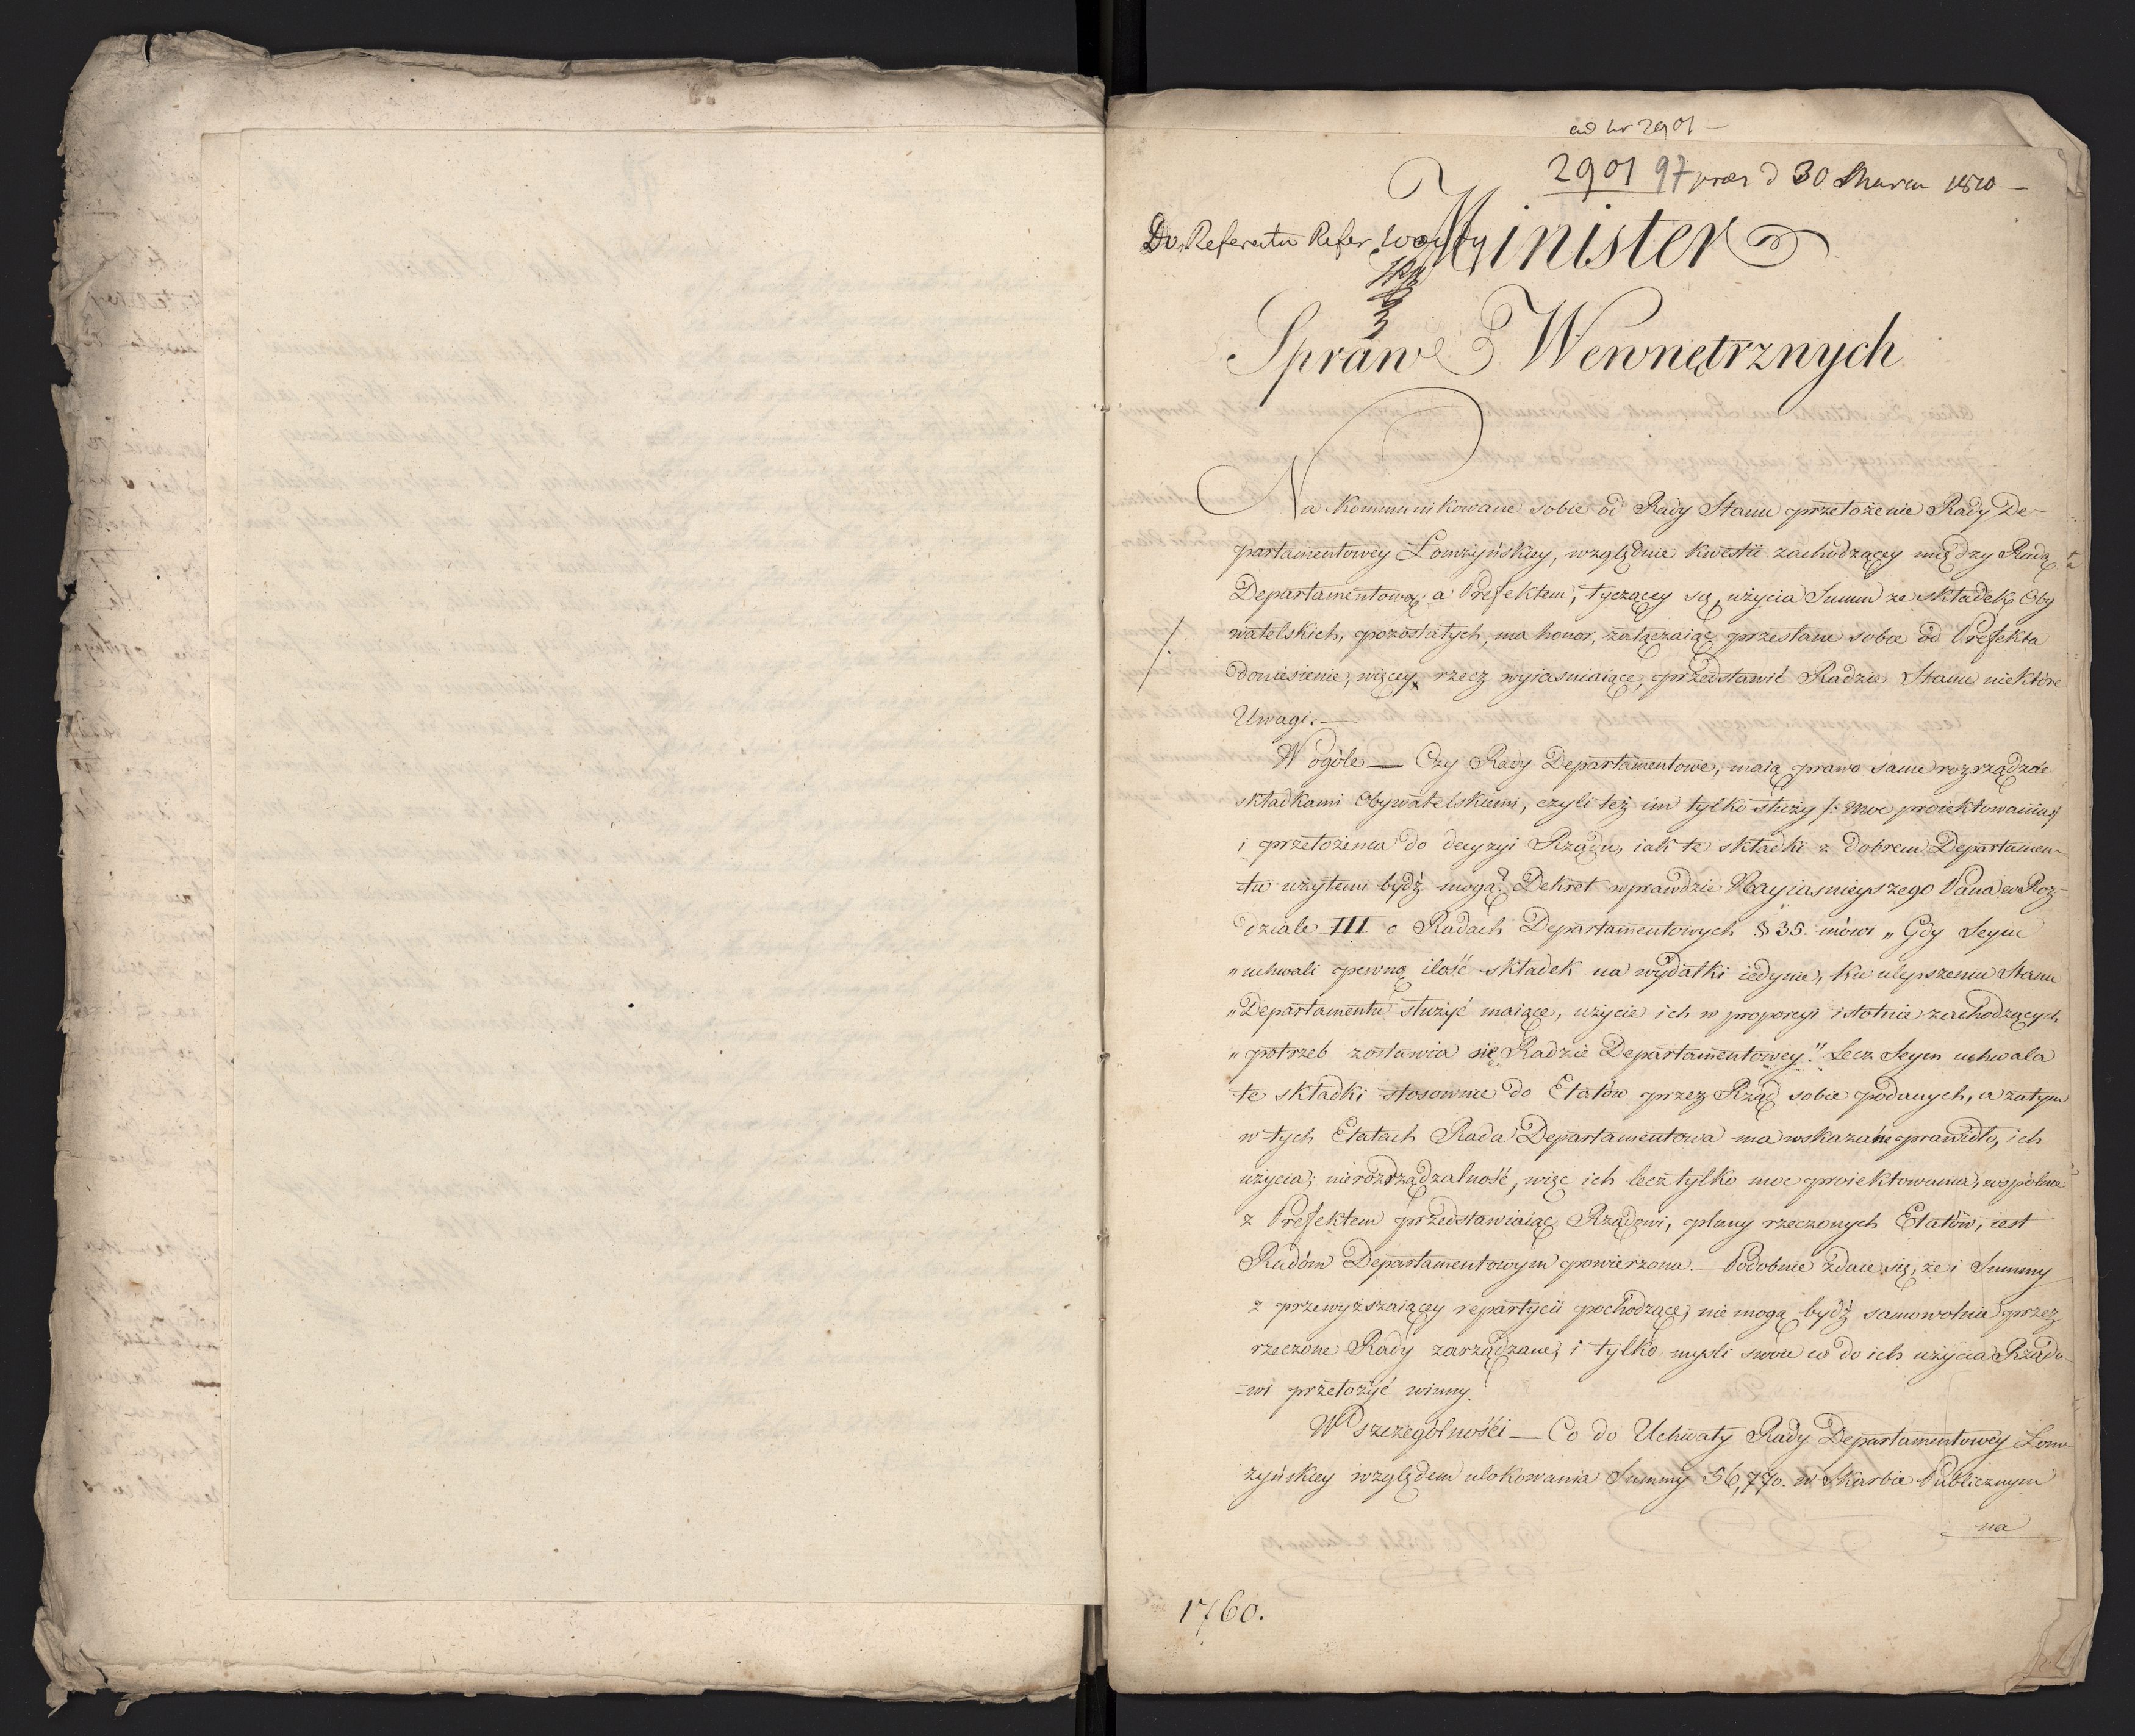 ad nr 2901 —
2901 97 præs d 30 Marca 1810 —
Do Referatu Refer. Woydy
Minister
Spraw Wewnętrznych
Na kommunikowane sobie od Rady Stanu przełożenie Rady De-
partamentowey Łomżyńskiey, względnie kwestii zachodzącey między Radą
Departamentową a Prefektem, tyczącey się użycia Summ ze składek Oby
watelskich, pozostałych, ma honor, załączaiąc przesłane sobie od Prefekta
doniesienie, więcey rzecz wyiasniaiące, przedstawić Radzie Stanu niektóre
Uwagi. —
W ogóle — Czy Rady Departamentowe, maią prawo same rozrządzać
składkami Obywatelskiemi, czyli też im tylko służy /: moc proiektowania :/
i przełożenia do decyzyi Rządu, iak te składki z dobrem Departamen-
tu użytemi bydź mogą? Dekret wprawdzie Nayiasnieyszego Pana w Roz-
dziale III o Radach Departamentowych § 35. mówi „Gdy Seym
„uchwali pewną ilość składek na wydatki iedynie, ku ulepszeniu Stanu
„Departamentu służyć maiące, użycie ich w proporcyi istotnie zachodzących
„potrzeb zostawia się Radzie Departamentowey." Lecz Seym uchwala
te składki stosownie do Etatów przez Rząd sobie podanych, a zatym
w tych Etatach Rada Departamentowa ma wskazane prawidło, ich
użycia; nierozrządzalność, więc ich lecz tylko moc proiektowania, wspólnie
z Prefektem przedstawiaiąc Rządowi, plany rzeczonych Etatów, iest
Radóm Departamentowym powierzona. — Podobnie zdaie się, że i Summy
z przewyższaiącey repartycii pochodzące, nie mogą bydź samowolnie przez
rzeczone Rady zarządzane, i tylko mysli swoie co do ich użycia Rządo-
-wi przełożyć winny.
W szczególności — Co do Uchwały Rady Departamentowey Łom-
żyńskiey względem ulokowania Summy 56,770. w Skarbie Publicznym
na
1760.